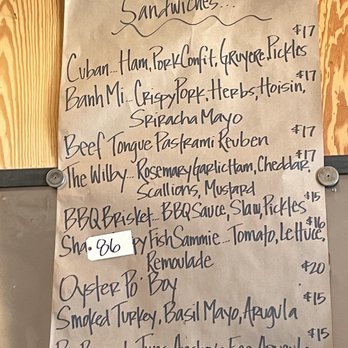 Sandwiches...
$17
Cuban... Ham, Pork Confit, Gruyere, Pickles
$17
Banh Mi... Crispy Pork, Herbs, Hoisin,
Sriracha Mayo
$17
Beef Tongue Pastrami Reuben
$17
The Wilby... Rosemary Garlic Ham, Cheddar,
Scallions, Mustard
$15
BBQ Brisket... BBQ Sauce, Slaw, Pickles
$16
86
Fish Sammie... Tomato, Lettuce,
Remoulade
$20
Oyster Po' Boy
$15
Smoked Turkey, Basil Mayo, Arugula
$15